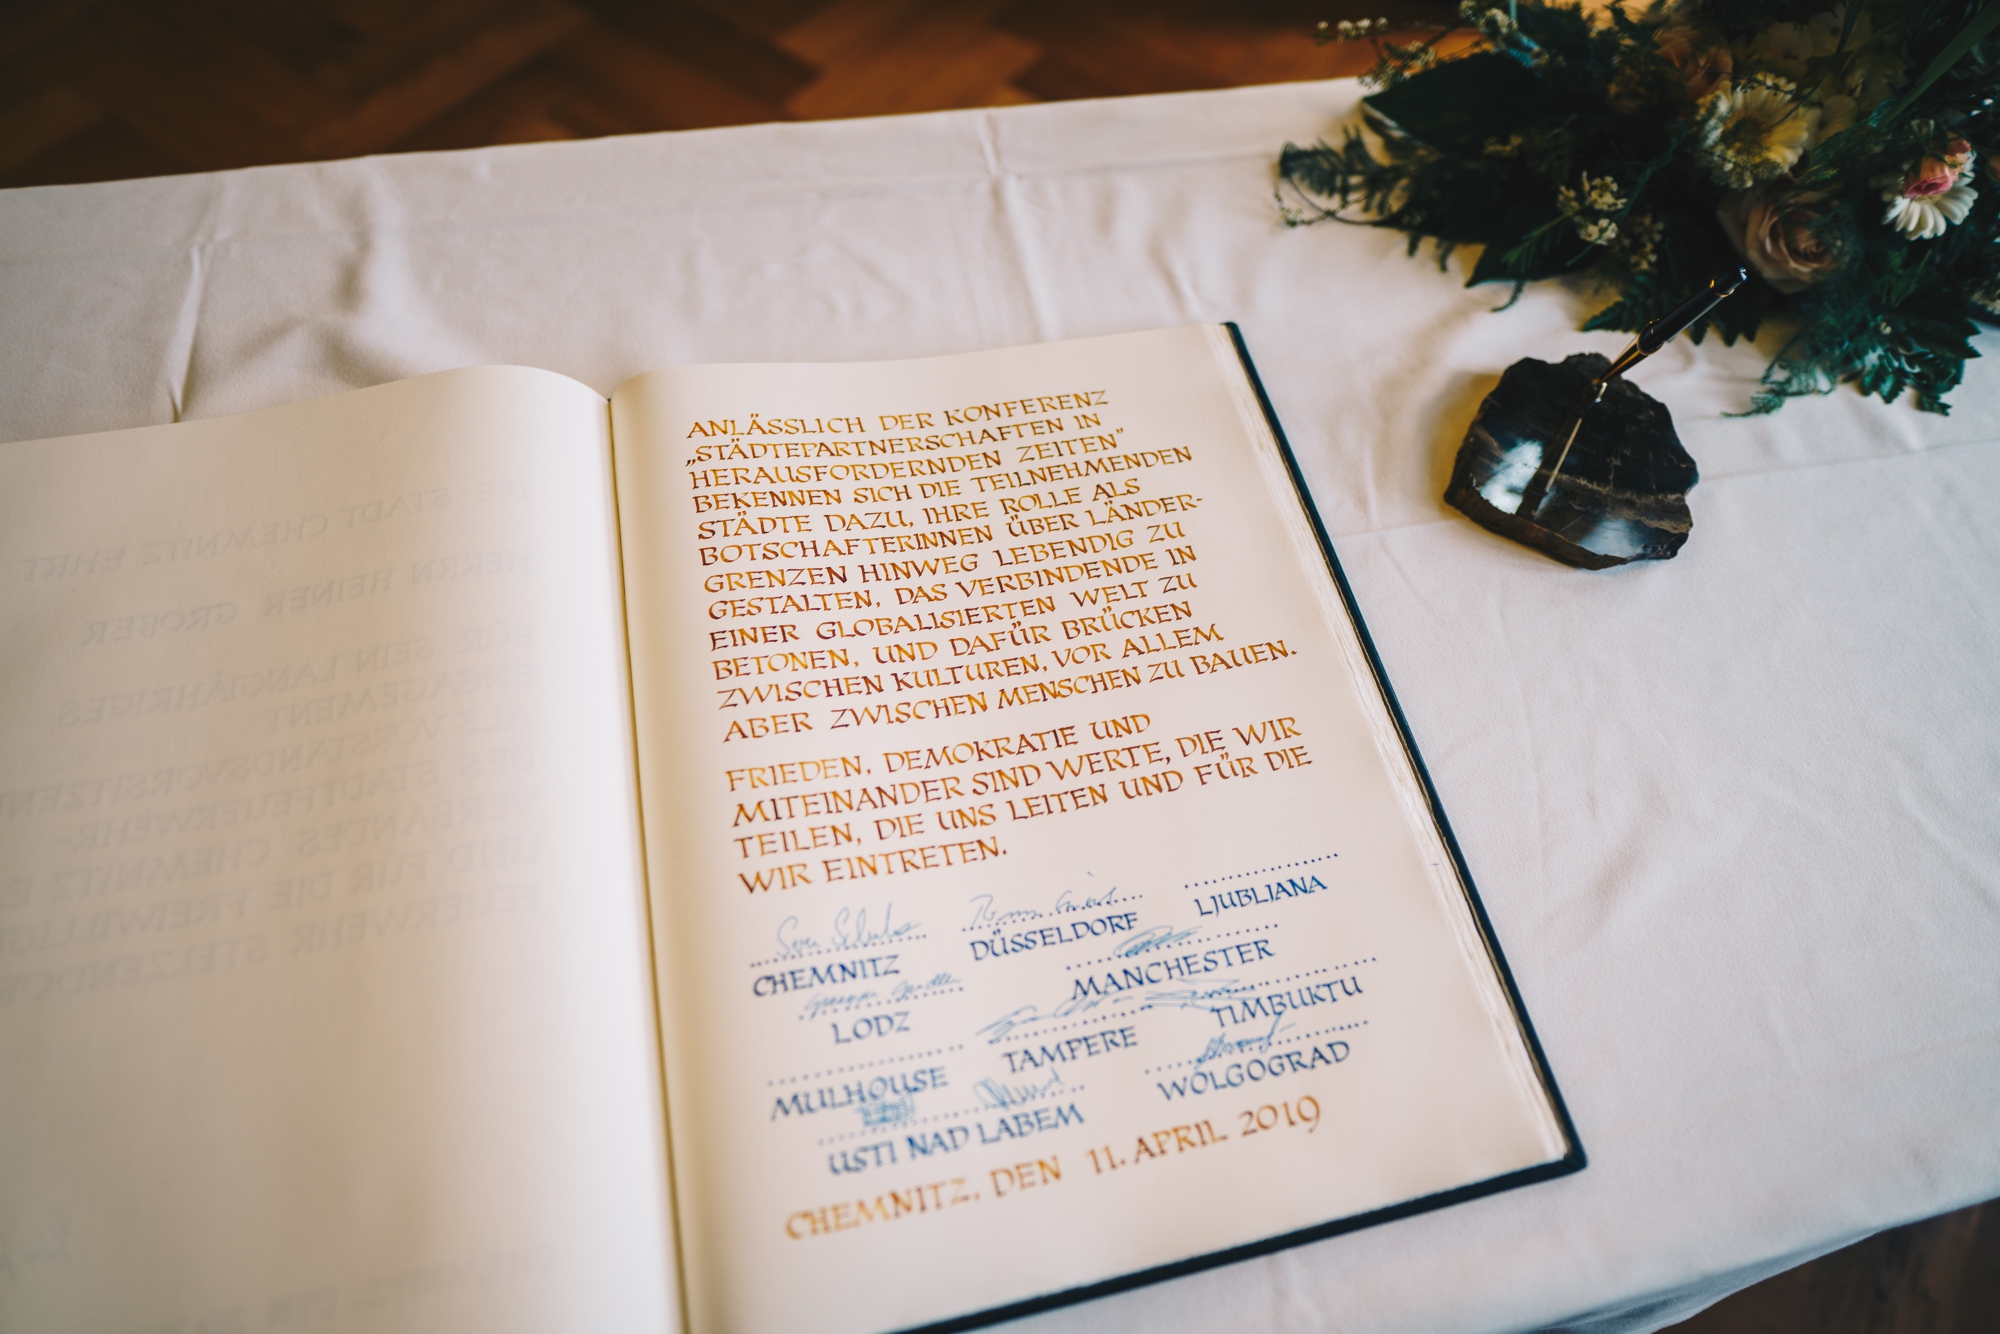 ANLÄSSLICH DER KONFERENZ
„STÄDTEPARTNERSCHAFTEN IN
HERAUSFORDERNDEN ZEITEN"
BEKENNEN SICH DIE TEILNEHMENDEN
STÄDTE DAZU, IHRE ROLLE ALS
BOTSCHAFTERINNEN ÜBER LÄNDER-
GRENZEN HINWEG LEBENDIG ZU
GESTALTEN, DAS VERBINDENDE IN
EINER GLOBALISIERTEN WELT ZU
BETONEN, UND DAFÜR BRÜCKEN
ZWISCHEN KULTUREN, VOR ALLEM
ABER ZWISCHEN MENSCHEN ZU BAUEN.
FRIEDEN, DEMOKRATIE UND
MITEINANDER SIND WERTE, DIE WIR
TEILEN, DIE UNS LEITEN UND FÜR DIE
WIR EINTRETEN.
CHEMNITZ
DÜSSELDORF
LJUBLJANA
LODZ
MANCHESTER
MULHOUSE
TAMPERE
TIMBUKTU
USTI NAD LABEM
WOLGOGRAD
CHEMNITZ, DEN 11. APRIL 2019
DIE STADT CHEMNITZ EHRT
HERRN HEINER GROBER
FÜR SEIN LANGJÄHRIGES
ENGAGEMENT
ALS
DES STADTFEUERWEHR-
VERBANDES CHEMNITZ
UND FÜR DIE
FEUERWEHR